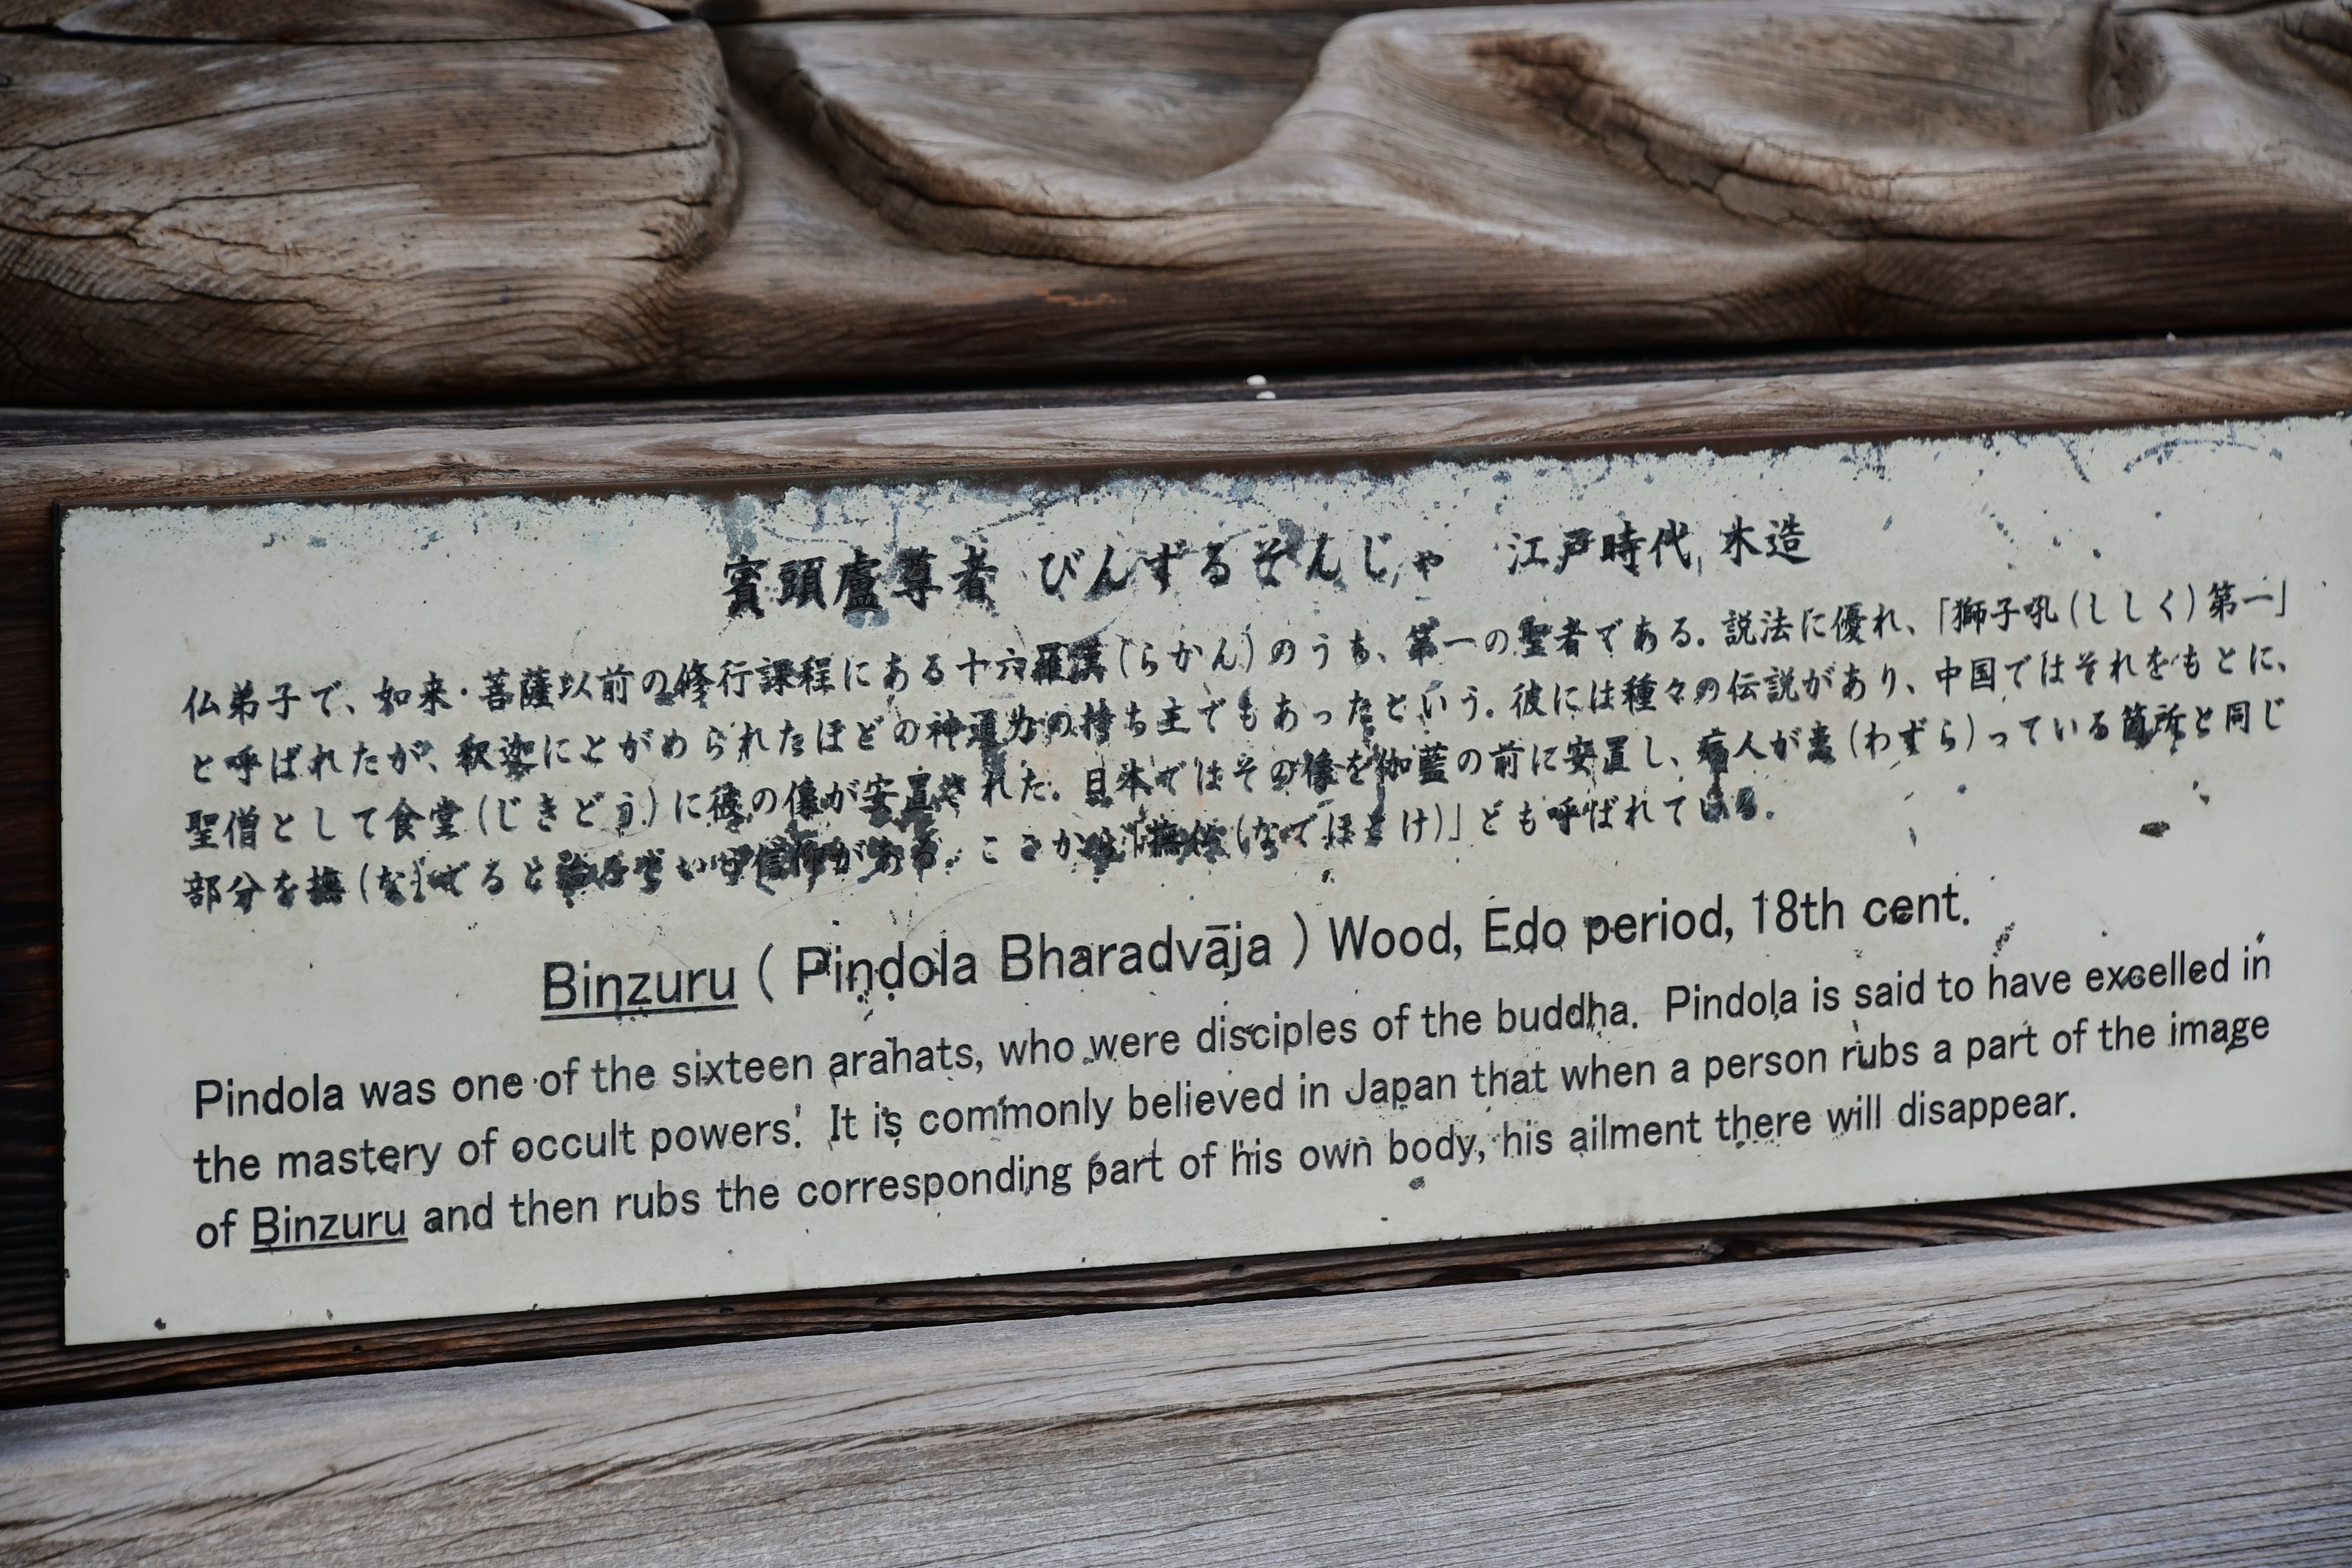 賓頭盧尊者 びんずるそんじゃ 江戸時代, 木造
仏弟子で、如来・菩薩以前の修行課程にある十六羅漢(らかん)のうち、第一の聖者である。説法に優れ、「獅子吼(ししく)第一」
と呼ばれたが、釈迦にとがめられたほどの神通力の持ち主でもあったという。彼には種々の伝説があり、中国ではそれをもとに、
聖僧として食堂(じきどう)に彼の像が安置された。日本ではその像を伽藍の前に安置し、病人が患(わずら)っている箇所と同じ
部分を撫(な)でると治るという信仰がある。ここから「撫仏(なでほとけ)」とも呼ばれている。
Binzuru ( Pindola Bharadvāja ) Wood, Edo period, 18th cent.
Pindola was one of the sixteen arahats, who were disciples of the buddha. Pindola is said to have excelled in
the mastery of occult powers. It is commonly believed in Japan that when a person rubs a part of the image
of Binzuru and then rubs the corresponding part of his own body, his ailment there will disappear.